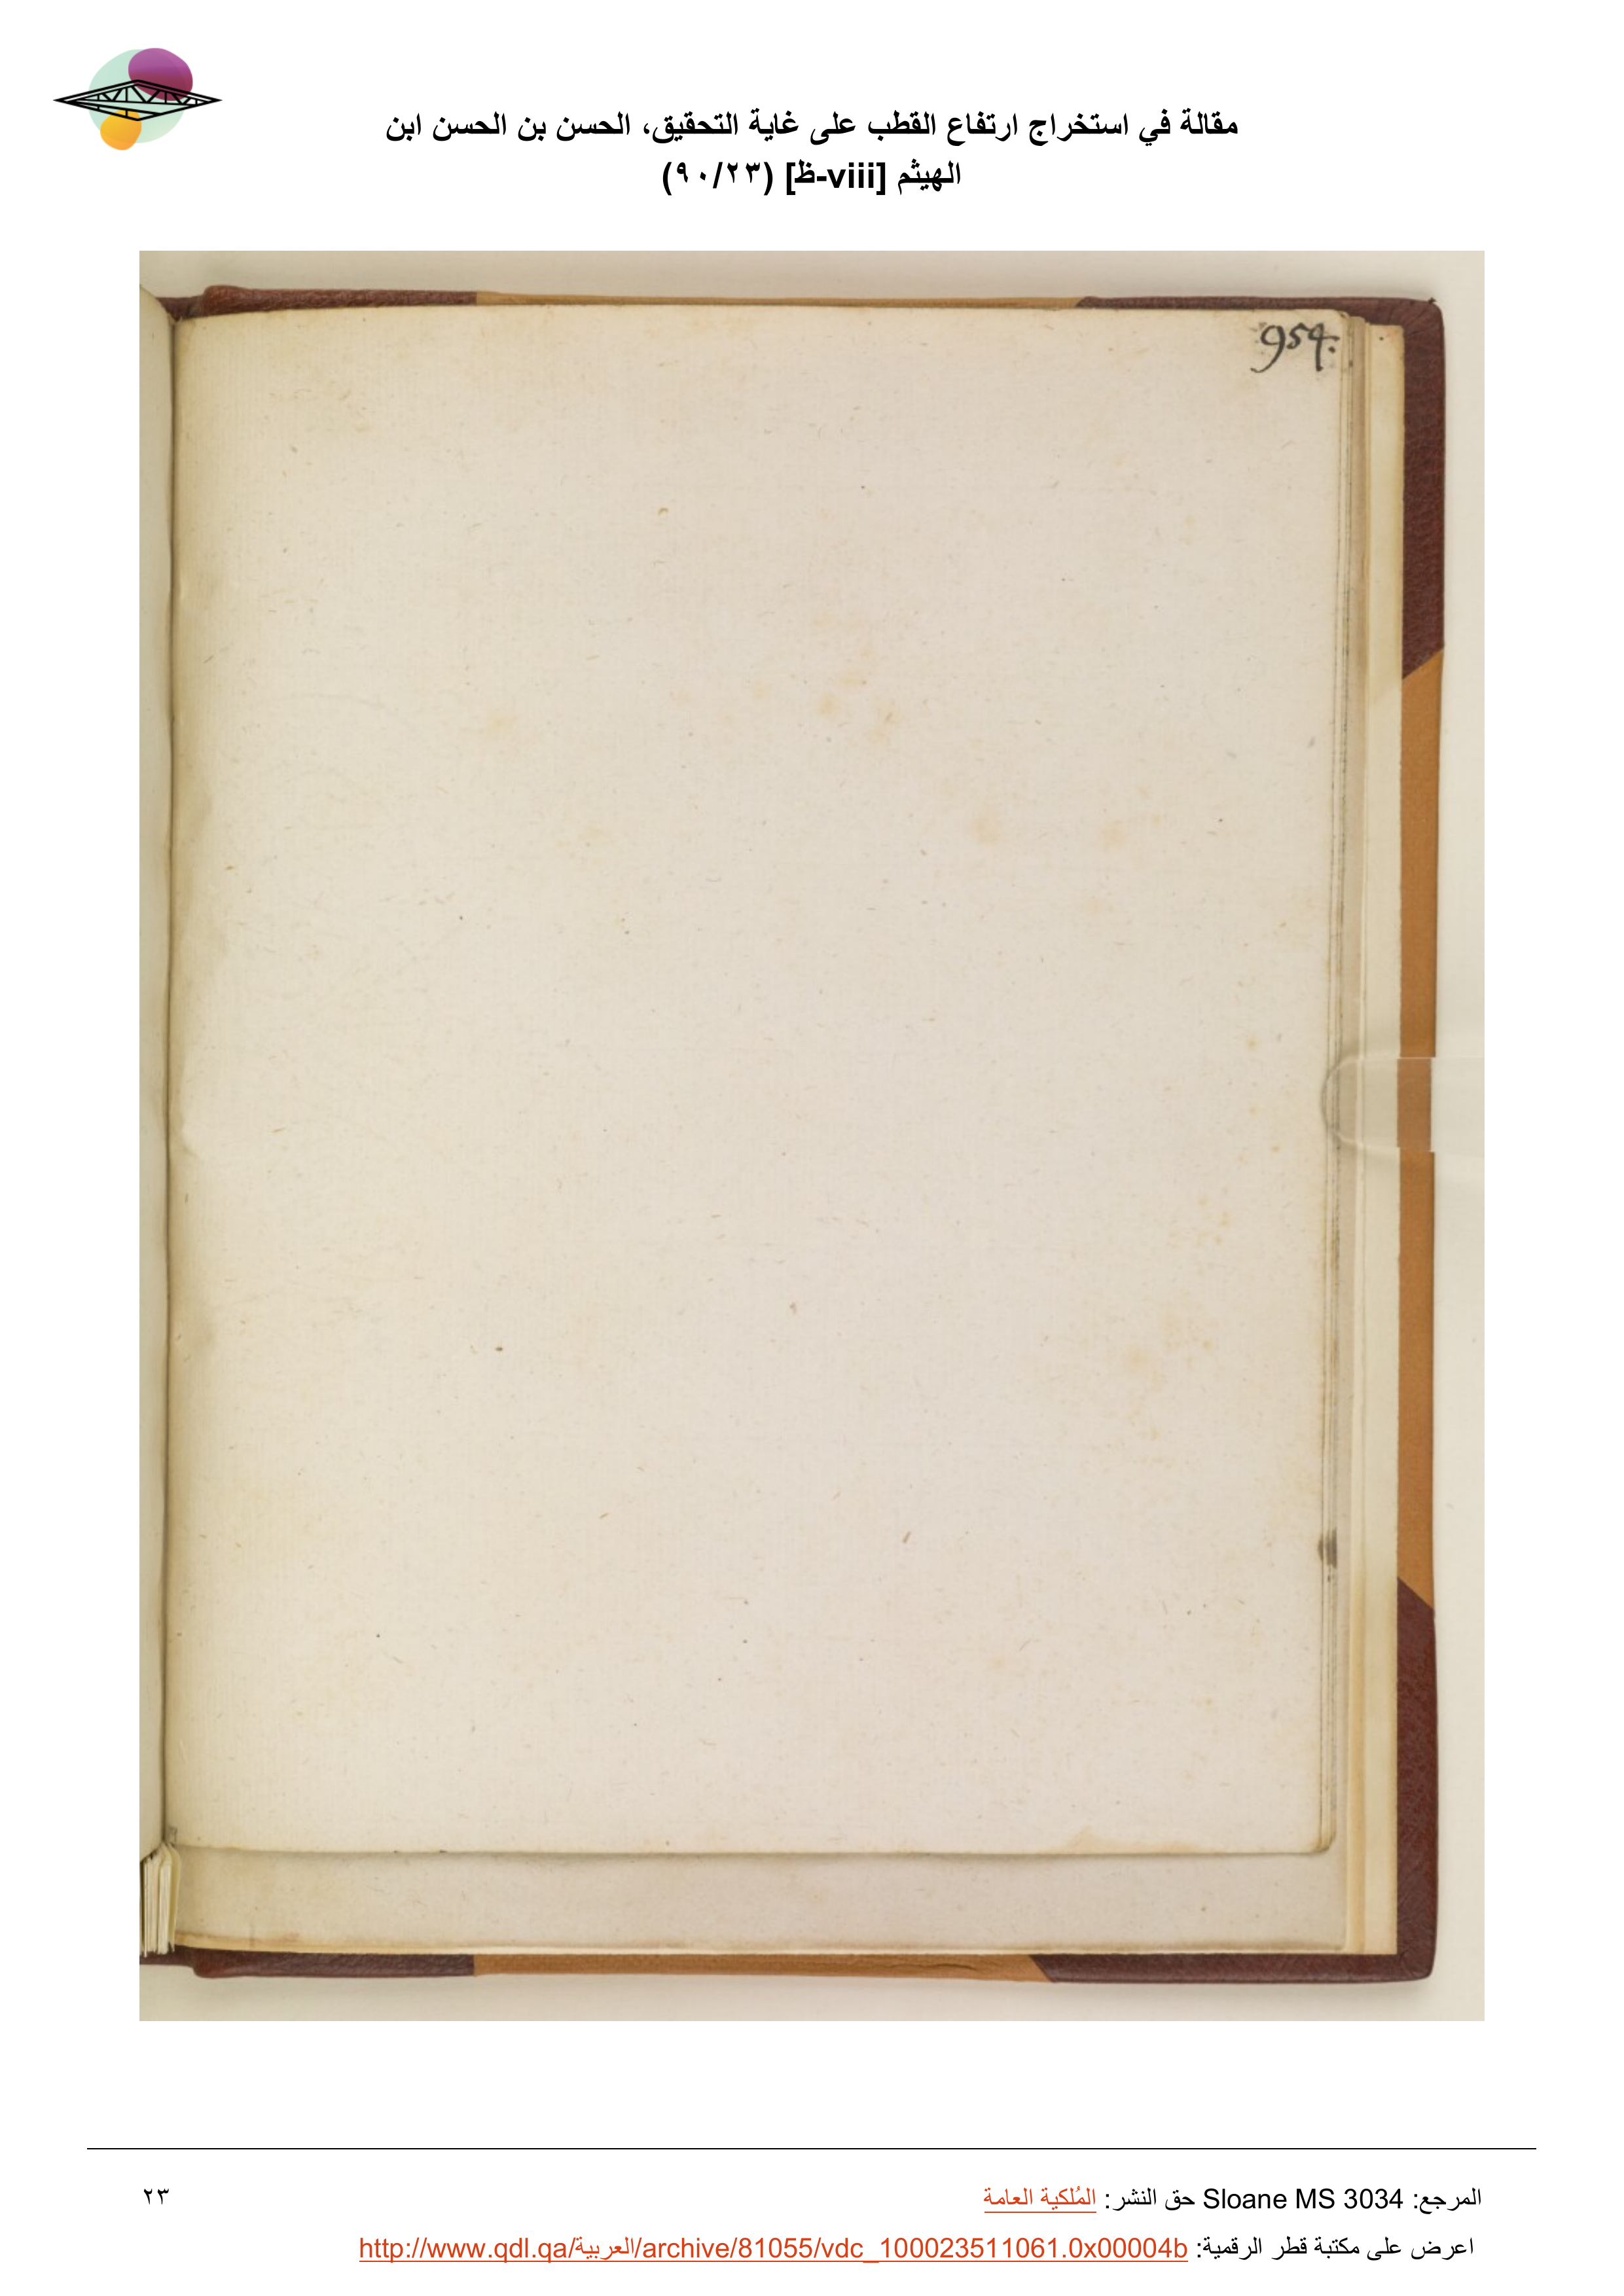 مقالة في استخراج ارتفاع القطب على غاية التحقيق، الحسن بن الحسن ابن
الهيثم [viii-ظ] (٩٠/٢٣)
954.
المرجع: Sloane MS 3034 حق النشر: المُلكية العامة
٢٣
اعرض على مكتبة قطر الرقمية: http://www.qdl.qa/العربية/archive/81055/vdc_100023511061.0x00004b